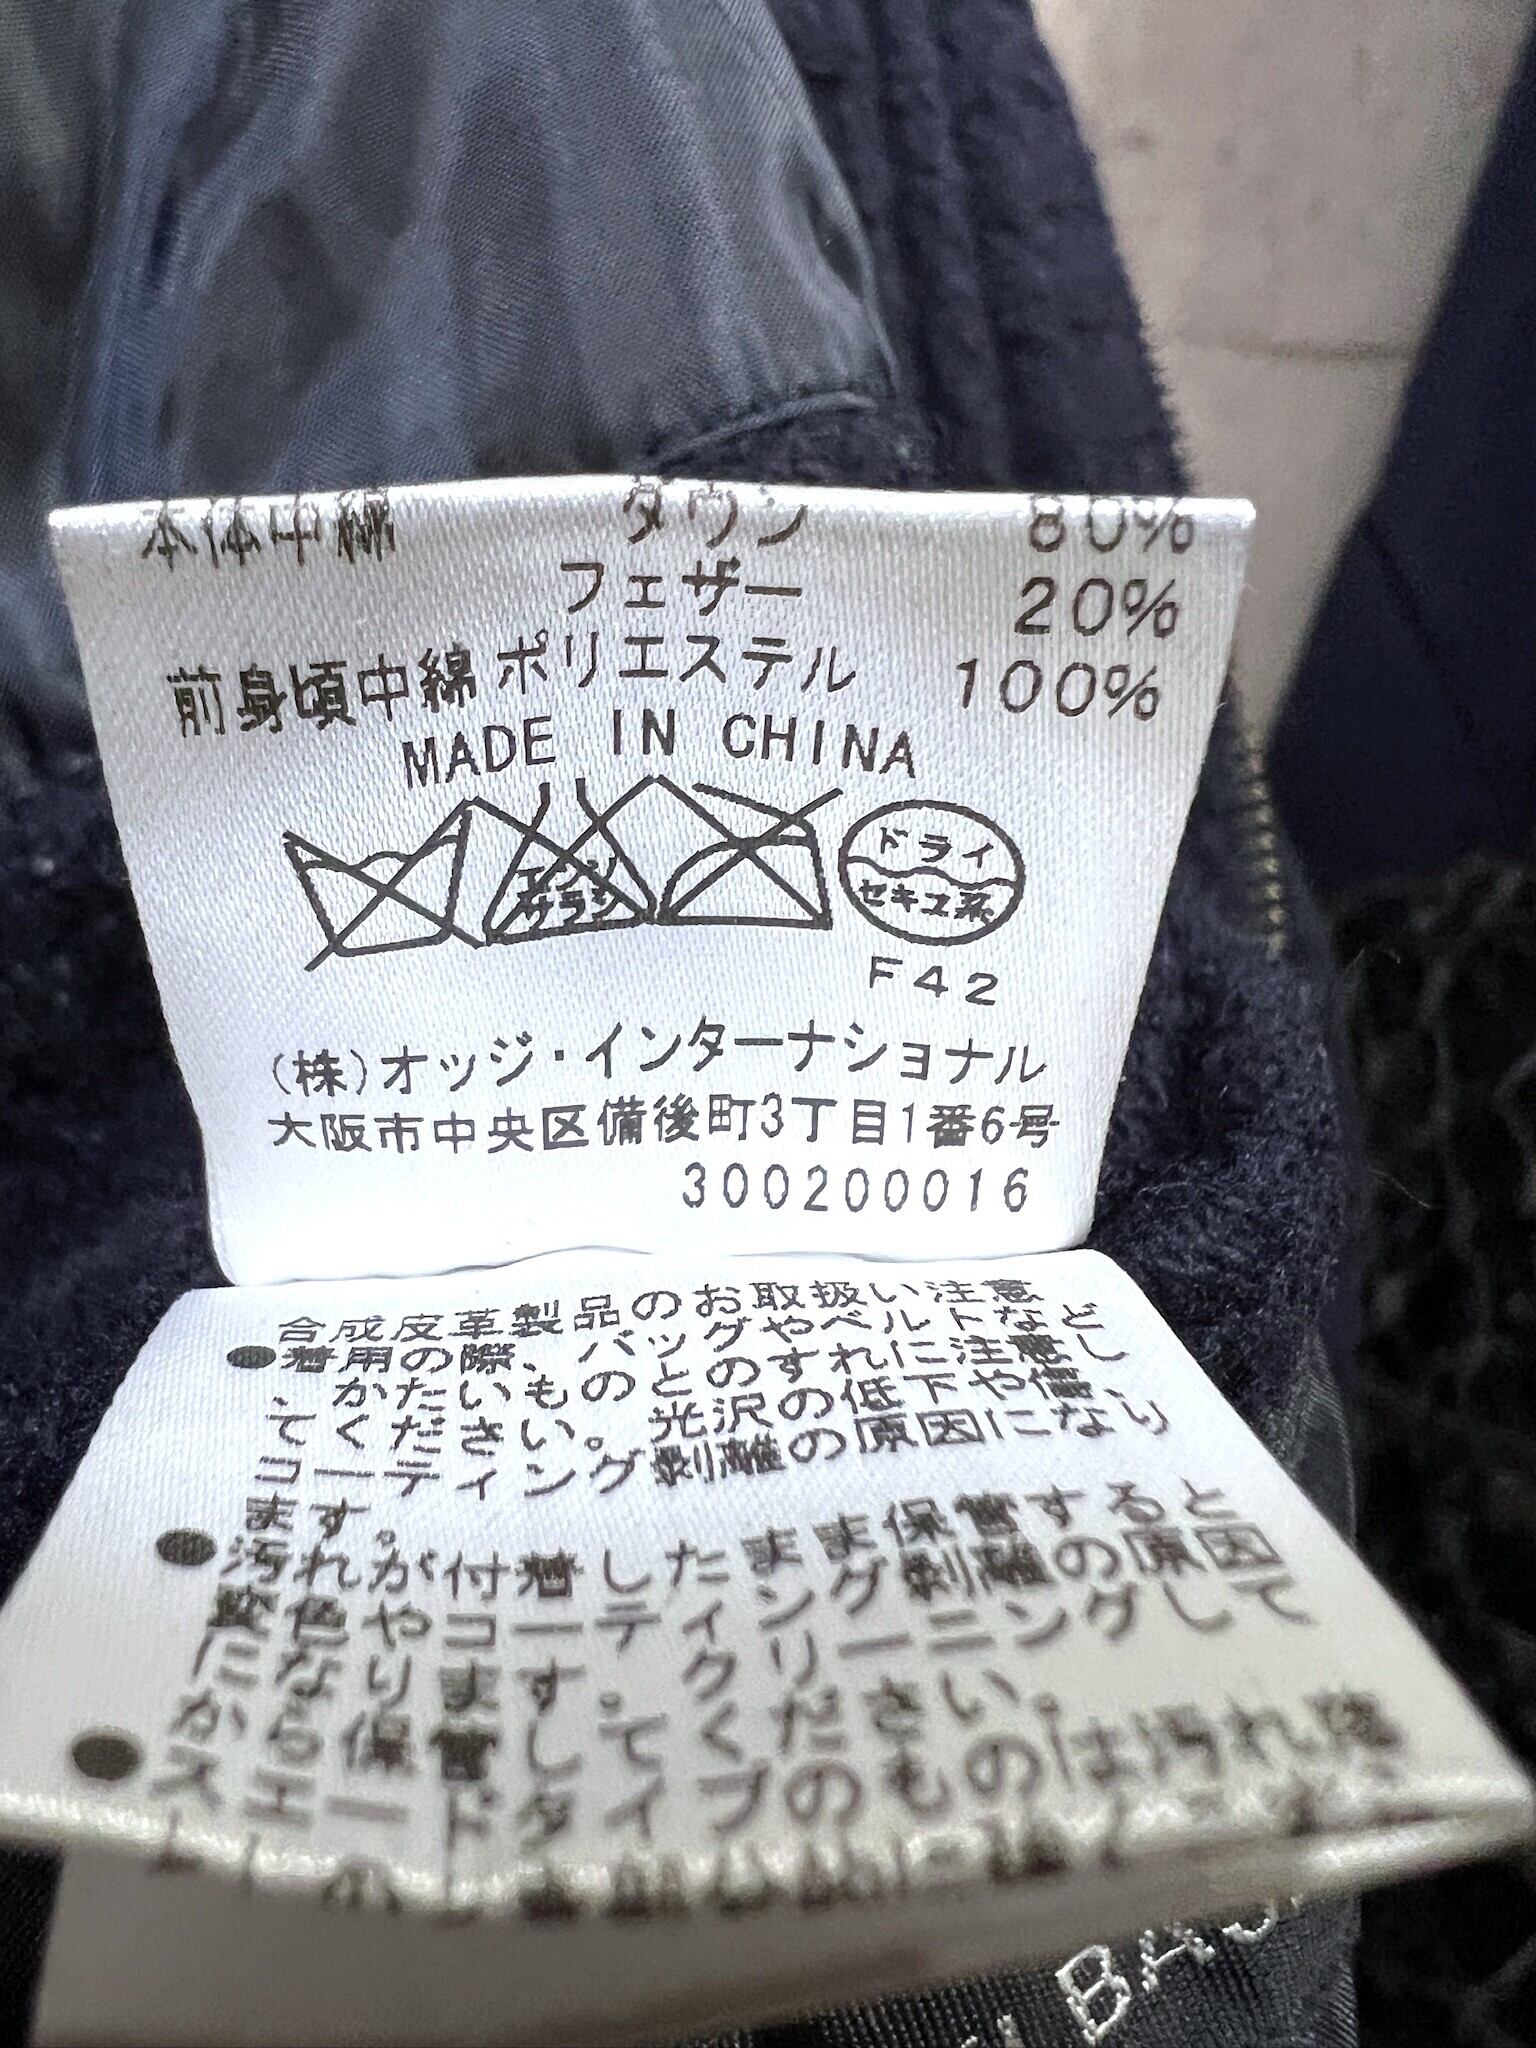 本体中綿 ダウン 80%
フェザー 20%
前身頃中綿 ポリエステル 100%
MADE IN CHINA
エンソ
サラシ
ドライ
セキユ系
F42
(株)オッジ・インターナショナル
大阪市中央区備後町3丁目1番6号
300200016
合成皮革製品のお取扱い注意
●着用の際、バッグやベルトなど
、かたいものとのすれに注意し
てください。光沢の低下や傷、
コーティング剥離の原因になり
ます。
●汚れが付着したまま保管すると
変色やコーティング剥離の原因
になります。クリーニングして
から保管してください。
●スエードタイプのものは汚れ落
BAS